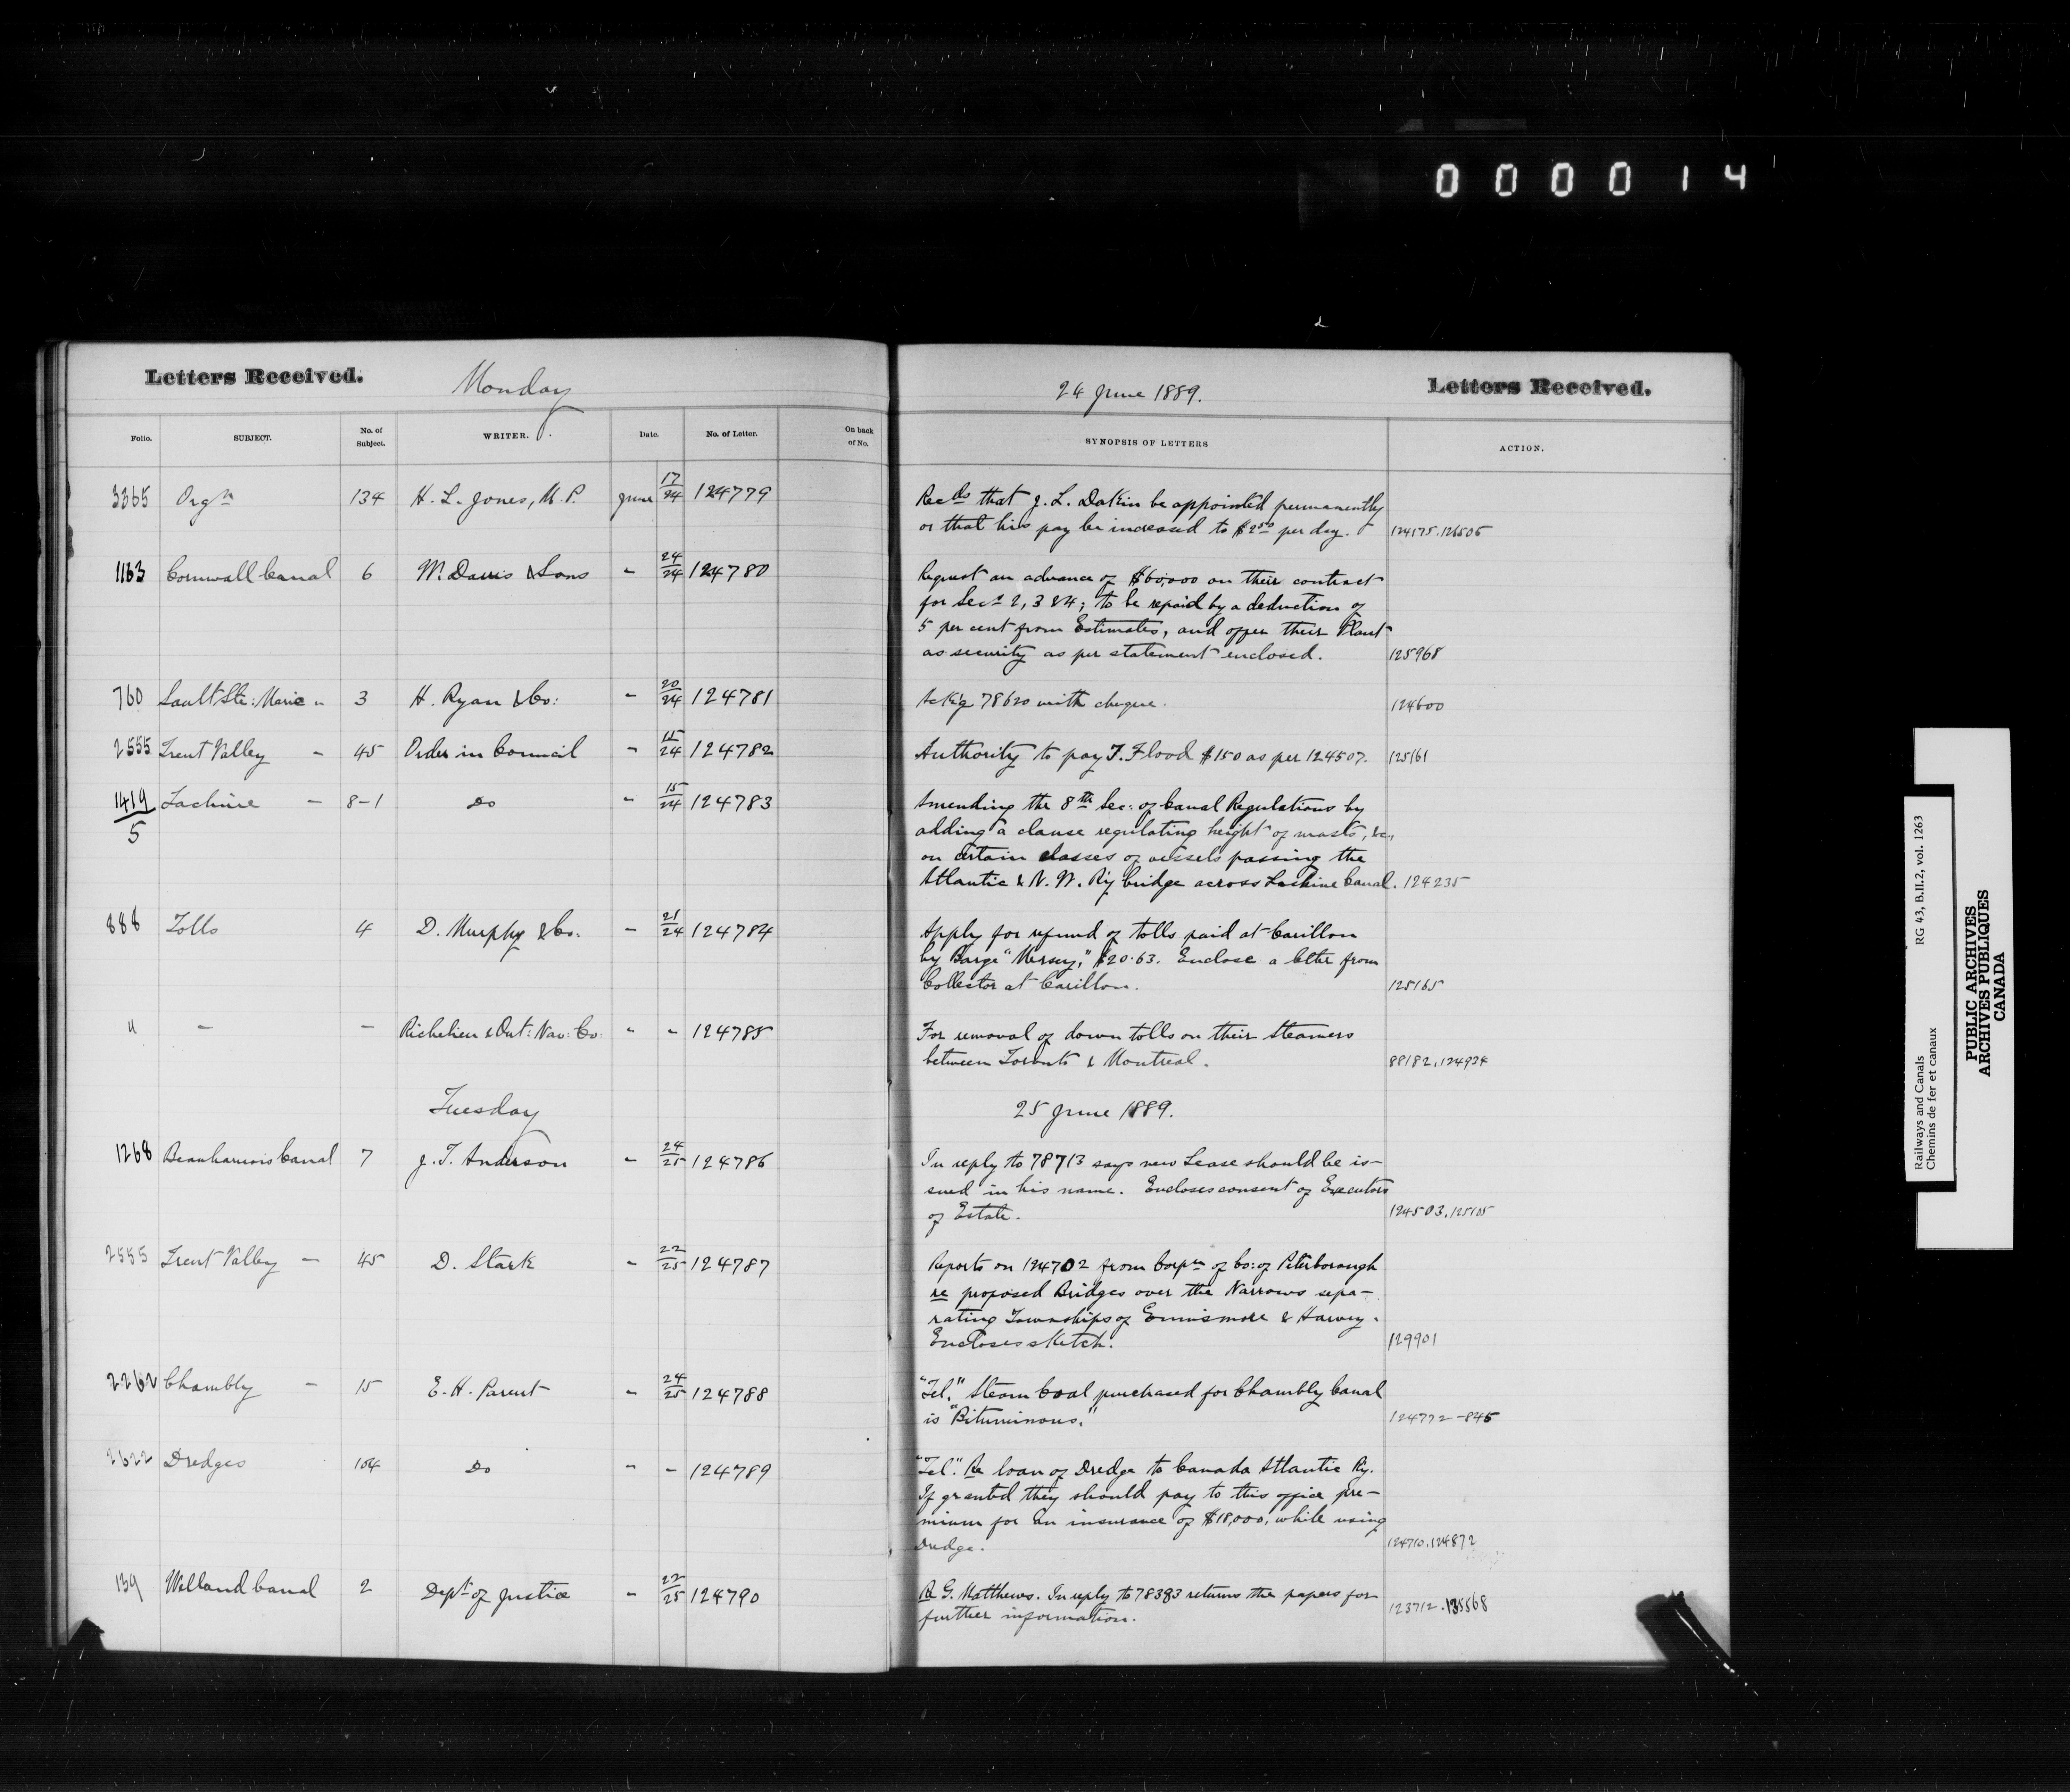 000014
Letters Received. Monday 24 June 1889. Letters Received.
Folio. SUBJECT. No. of Subject. WRITER. Date. No. of Letter. On back of No. SYNOPSIS OF LETTERS ACTION.
3365 Orgn 134 H. L. Jones, M.P. June 17/24 124779 Recds that J. L. Dakin be appointed permanently
or that his pay be increased to $2.50 per day. 124175.126505
1163 Cornwall Canal 6 M. Davis & Sons " 24/24 124780 Request an advance of $60,000 on their contract
for Secs 2, 3 & 4; to be repaid by a deduction of
5 per cent from Estimates, and offer their Plant
as security as per statement enclosed. 125968
760 Sault Ste: Marie " 3 H. Ryan & Co: " 20/24 124781 Ackg 78620 with cheque. 124600
2555 Trent Valley " 45 Order in Council " 15/24 124782 Authority to pay T. Flood $150 as per 124507. 125161
1419/5 Lachine " 8-1 Do " 15/24 124783 Amending the 8th Sec: of Canal Regulations by
adding a clause regulating height of masts, &c.,
on certain classes of vessels passing the
Atlantic & N. W. Ry bridge across Lachine Canal. 124235
888 Tolls 4 D. Murphy & Co. " 21/24 124784 Apply for refund of tolls paid at Carillon
by Barge "Mersey," $20.63. Enclose a letter from
Collector at Carillon. 125165
" " " Richelieu & Ont: Nav: Co: " " 124785 For removal of down tolls on their Steamers
between Toronto & Montreal. 88182.124934
Tuesday 25 June 1889.
1268 Beauharnois Canal 7 J. T. Anderson " 24/25 124786 In reply to 78713 says new Lease should be is-
sued in his name. Encloses consent of Executors
of Estate. 124503.125105
2555 Trent Valley " 45 D. Stark " 22/25 124787 Reports on 124702 from Corpn of Co: of Peterborough
re proposed Bridges over the Narrows sepa-
rating Townships of Ennismore & Harvey.
Encloses sketch. 129901
2262 Chambly " 15 E. H. Parent " 24/25 124788 "Tel." Steam Coal purchased for Chambly Canal
is "Bituminous." 124772-845
2622 Dredges 104 Do " " 124789 "Tel." Re loan of Dredge to Canada Atlantic Ry.
If granted they should pay to this office pre-
mium for an insurance of $18,000, while using
Dredge. 124710.124872
139 Welland Canal 2 Dept of Justice " 22/25 124790 Re G. Matthews. In reply to 78383 returns the papers for
further information. 123712.135568
Railways and Canals RG 43, B.II.2, vol. 1263
Chemins de fer et canaux
PUBLIC ARCHIVES
ARCHIVES PUBLIQUES
CANADA